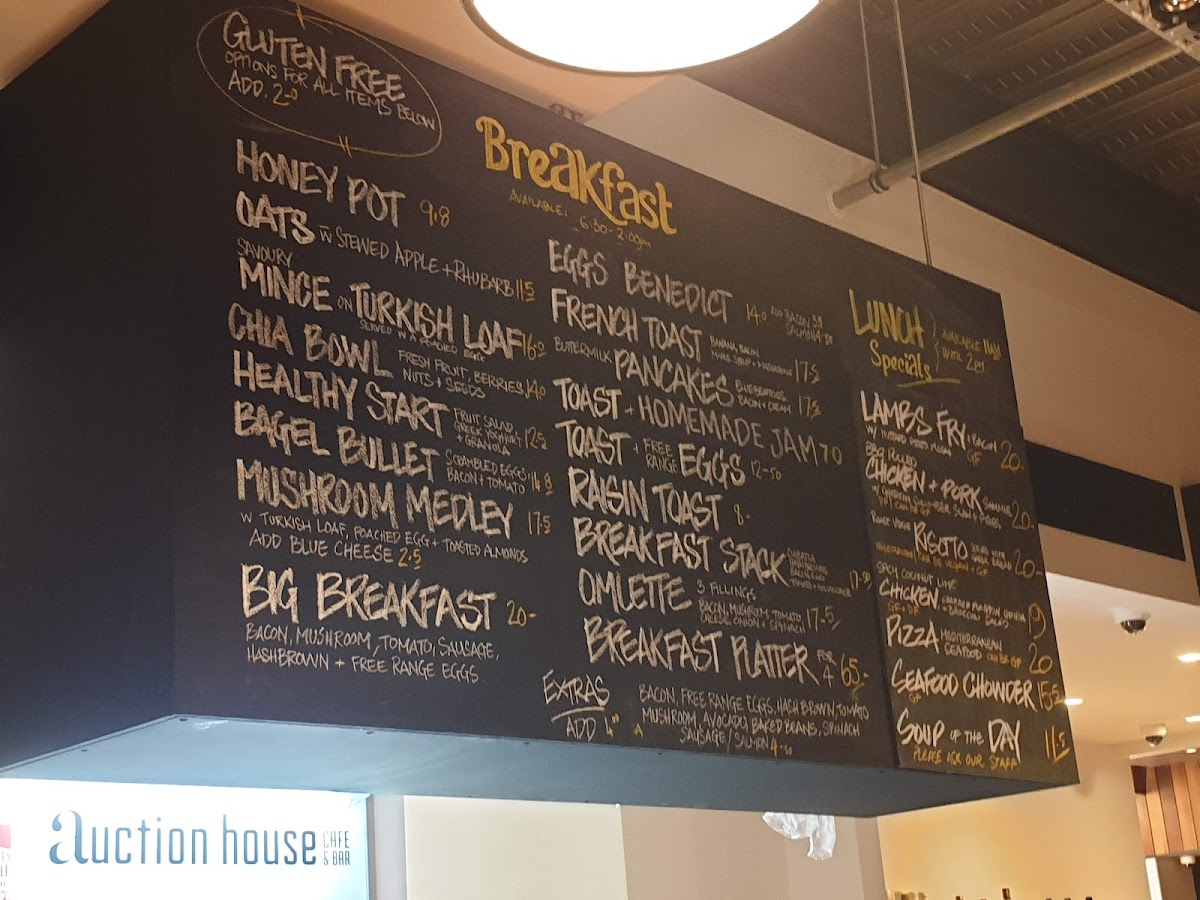 GLUTEN FREE
OPTIONS FOR ALL ITEMS BELOW
ADD. 2.0
Breakfast
AVAILABLE: 6:30-2:00pm
HONEY POT 9.8
OATS W STEWED APPLE + RHUBARB 11.5
SAVOURY
MINCE ON TURKISH LOAF 16.0
SERVED W A POACHED EGG
CHIA BOWL FRESH FRUIT, BERRIES,
NUTS + SEEDS 14.0
HEALTHY START FRUIT SALAD,
GREEK YOGHURT
+ GRANOLA 12.5
BAGEL BULLET SCRAMBLED EGGS,
BACON + TOMATO 14.8
MUSHROOM MEDLEY 17.5
W TURKISH LOAF, POACHED EGG + TOASTED ALMONDS
ADD BLUE CHEESE 2.5
BIG BREAKFAST 20-
BACON, MUSHROOM, TOMATO, SAUSAGE,
HASHBROWN + FREE RANGE EGGS
EGGS BENEDICT 14.0 ADD BACON
SALMON
FRENCH TOAST BANANA, BACON,
17.5
BUTTERMILK PANCAKES BLUEBERRIES,
BACON + CREAM 17.5
TOAST + HOMEMADE JAM 7.0
TOAST + FREE RANGE EGGS 12-50
RAISIN TOAST 8-
BREAKFAST STACK
17-50
OMLETTE 3 FILLINGS
BACON, MUSHROOM, TOMATO,
CHEESE, ONION + SPINACH 17-5
BREAKFAST PLATTER FOR 4 65-
EXTRAS
ADD 4
BACON, FREE RANGE EGGS, HASH BROWN, TOMATO
MUSHROOM, AVOCADO, BAKED BEANS, SPINACH
SAUSAGE / SALMON 4-50
LUNCH
Specials
AVAILABLE 11AM
UNTIL 2PM
LAMBS FRY + BACON
GF 20-
BBQ PULLED
CHICKEN + PORK SAMMIE
20-
RISOTTO
20-
COCONUT LIME
CHICKEN
9
PIZZA MEDITERRANEAN
SEAFOOD CAN BE GF 20
SEAFOOD CHOWDER 15.5
GF
SOUP OF THE DAY 11.5
PLEASE ASK OUR STAFF
auction house CAFE
& BAR